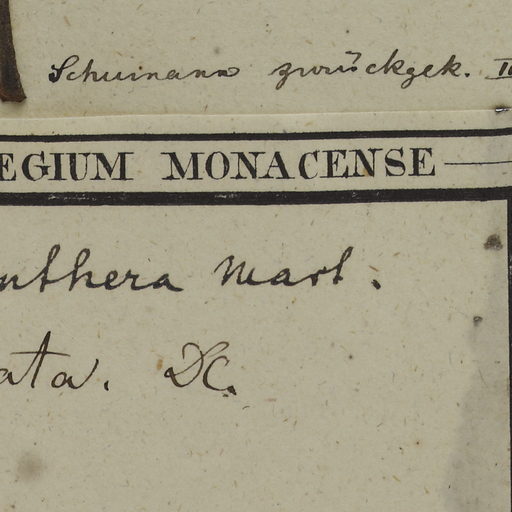 Schumann zurückgek.
EGIUM MONACENSE
nthera Mart.
ata. DC.